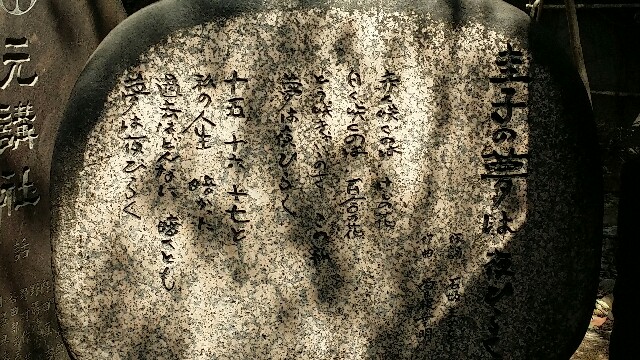 圭子の夢は夜ひらく
作詞 石坂
作曲
赤く咲くのは けしの花
白く咲くのは 百合の花
どう咲きゃいいのさ この私
夢は夜ひらく
十五 十六 十七と
私の人生 暗かった
過去はどんなに 暗くとも
夢は夜ひらく
元講社